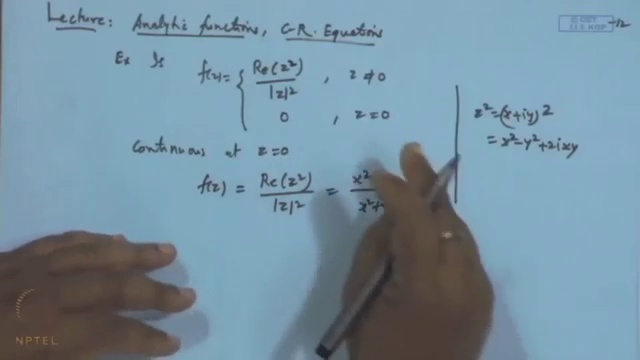 Lecture: Analytic functions, C-R. Equations
Ex Is
f(z) = { Re(z²) / |z|² , z ≠ 0
0 , z = 0
Continuous at z=0
f(z) = Re(z²) / |z|² = x² / x²+
z² = (x+iy)²
= x²-y²+2ixy
NPTEL